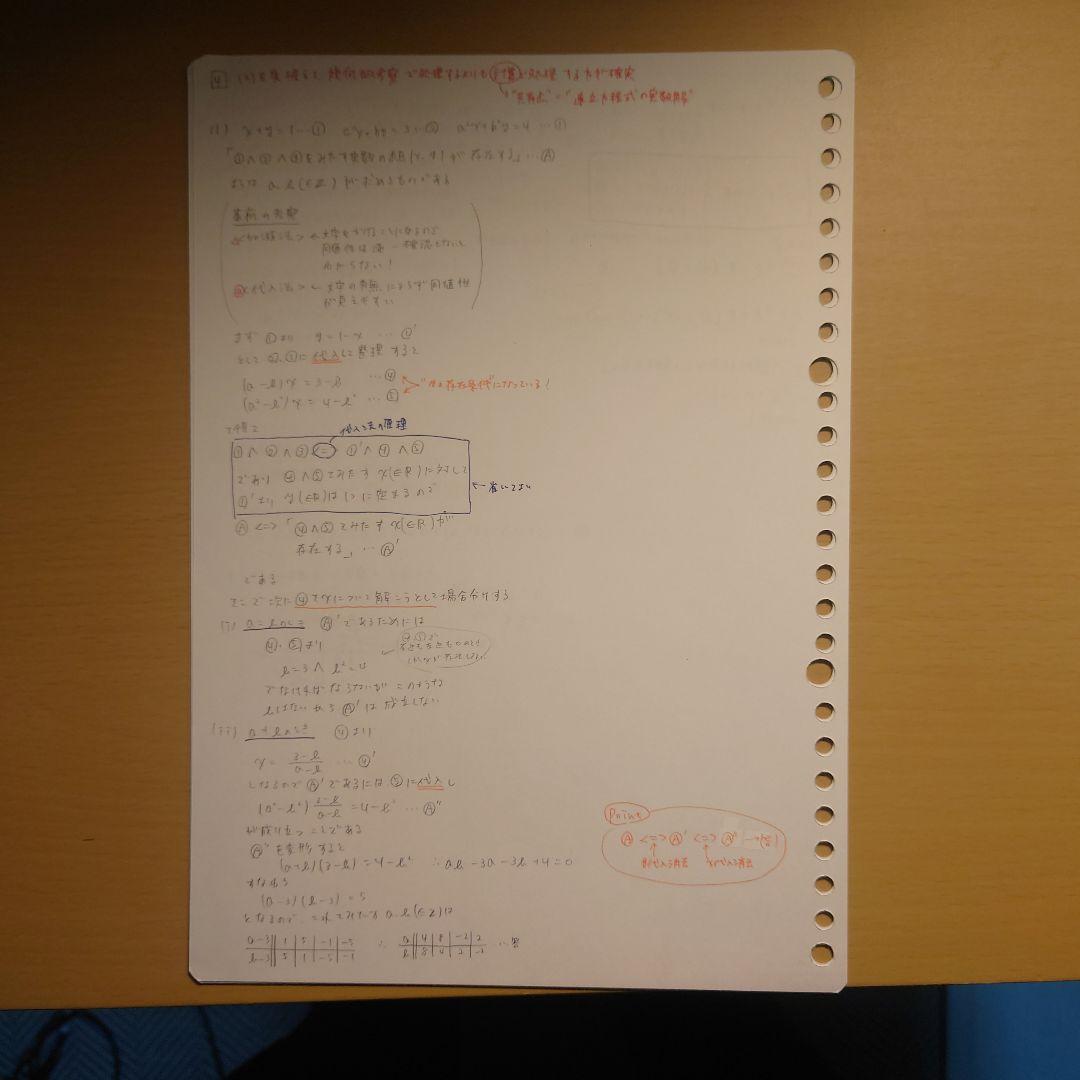 4 (2)を見据えて、幾何的考察で処理するよりも計算で処理する方が確実
"共有点" = "連立方程式の実数解"
(1) x+y=1…① ax+by=3…② a²x+b²y=4…③
「①∧②∧③をみたす実数の組(x,y)が存在する」…Ⓐ
a,b(∈Z)が求めるものである
事前の考察
<加減法> ← 文字をかけることになるので
同値性は逐一確認しないと
わからない!
<代入法> ← 文字の有無によらず同値性
が見えやすい
まず①より y=1-x …①'
そして②,③に代入して整理すると
(a-b)x=3-b …④
(a²-b²)x=4-b² …⑤
"yの存在条件"になっている!
代入法の原理
①∧②∧③ <=> ①'∧④∧⑤
であり ④∧⑤をみたすx(∈R)に対して
①'より y(∈R)は1つに定まるので
← 省いてよい
Ⓐ <=> 「④∧⑤をみたすx(∈R)が
存在する」…Ⓐ'
である
そこで次に④をxについて解こうとして場合分けする
(i) a=bのとき Ⓐ'であるためには
④,⑤より
b=3 ∧ b²=4
でなければならないが このような
bはないからⒶ'は成立しない
(ii) a≠bのとき ④より
x = 3-b/a-b …④'
となるのでⒶ'であるには⑤に代入し
(a²-b²) 3-b/a-b = 4-b² …Ⓐ''
が成り立つことである
Ⓐ''を変形すると
(a+b)(3-b)=4-b² ∴ab-3a-3b+4=0
すなわち
(a-3)(b-3)=5
となるので、これをみたすa,b(∈Z)は
a-3 | 1 | 5 | -1 | -5 ∴ a | 4 | 8 | -2 | 2 …答
b-3 | 5 | 1 | -5 | -1 b | 8 | 4 | 2 | -2
Point
Ⓐ <=> Ⓐ' <=> Ⓐ''
yを代入消去 xを代入消去